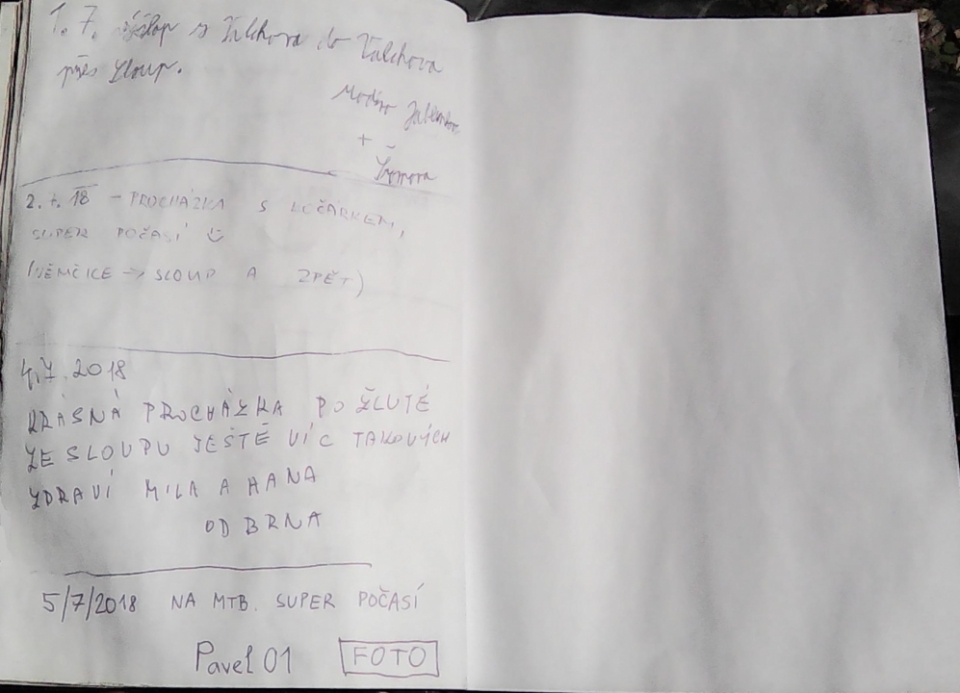 1. 7. výšlap z Valchova do Valchova
přes Sloup.
+
2. 7. 18 - PROCHÁZKA S KOČÁRKEM,
SUPER POČASÍ
(NĚMČICE -> SLOUP A ZPĚT)
4.7.2018
KRÁSNÁ PROCHÁZKA PO ŽLUTÉ
ZE SLOUPU JEŠTĚ VÍC TAKOVÝCH
ZDRAVÍ MILA A HANA
OD BRNA
5/7/2018 NA MTB. SUPER POČASÍ
Pavel 01 FOTO